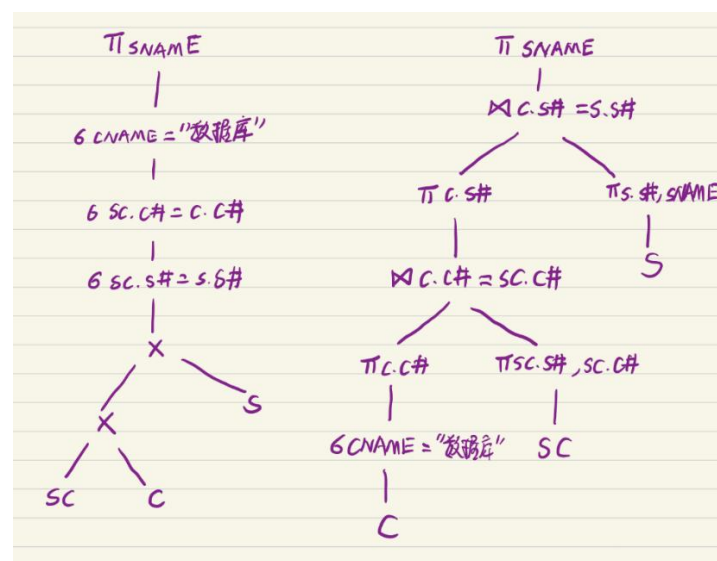 π SNAME
6 CNAME = "数据库"
6 SC.C# = C.C#
6 SC.S# = S.S#
×
× S
SC C
π SNAME
⋈ C.S# = S.S#
π C.S# π S.S#, SNAME
S
⋈ C.C# = SC.C#
π C.C# π SC.S#, SC.C#
6 CNAME = "数据库" SC
C